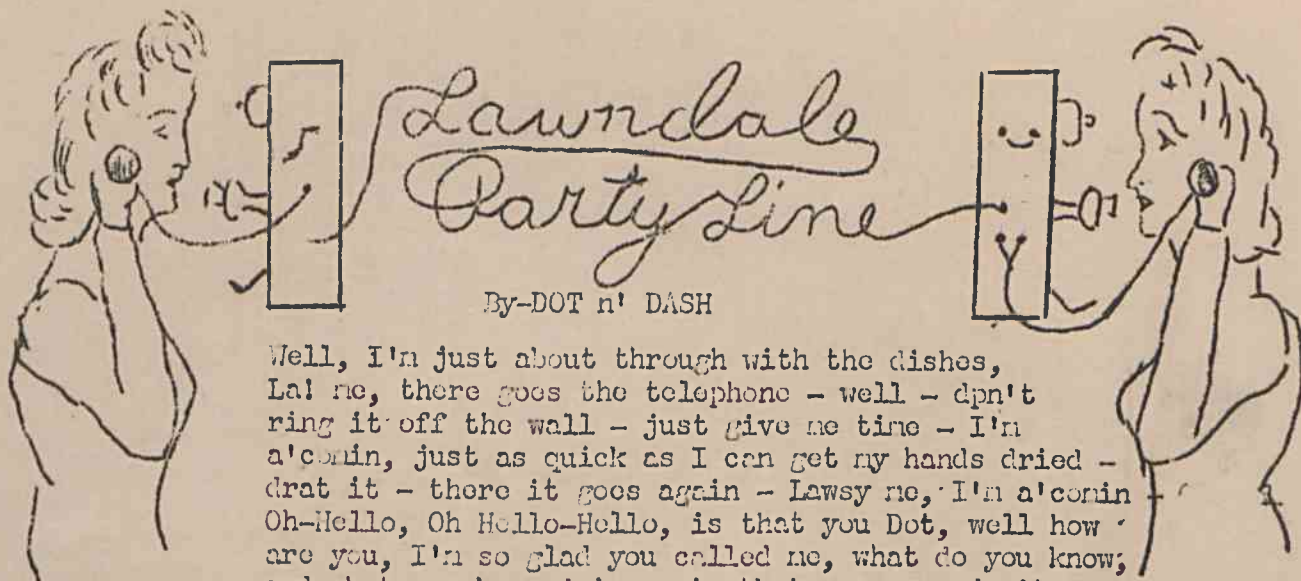 Lawndale
Party Line
By-DOT n' DASH
Well, I'm just about through with the dishes,
La! me, there goes the telephone - well - dpn't
ring it off the wall - just give me time - I'm
a'comin, just as quick as I can get my hands dried -
drat it - there it goes again - Lawsy me, I'm a'comin -
Oh-Hello, Oh Hello-Hello, is that you Dot, well how
are you, I'm so glad you called me, what do you know;